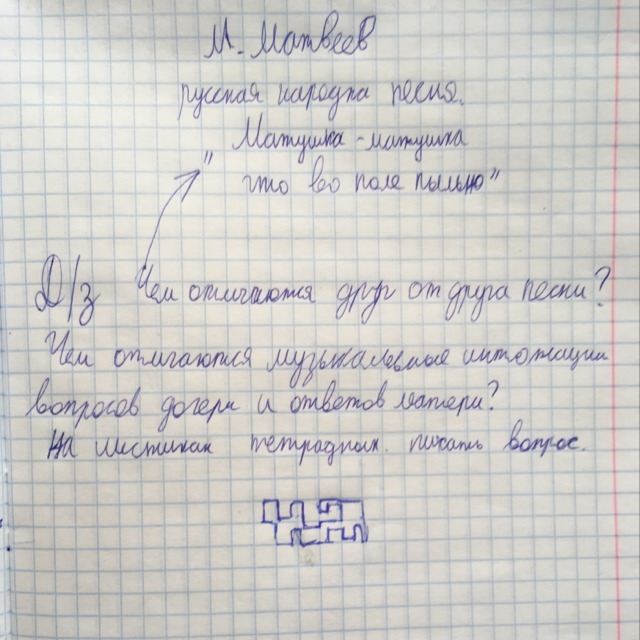 М. Матвеев
русская народна песня.
Матушка-матушка
"что во поле пыльно"
Д/з Чем отличаются друг от друга песни?
Чем отличаются музыкальные интонации
вопросов дочери и ответов матери?
На листиках тетрадных. писать вопрос.